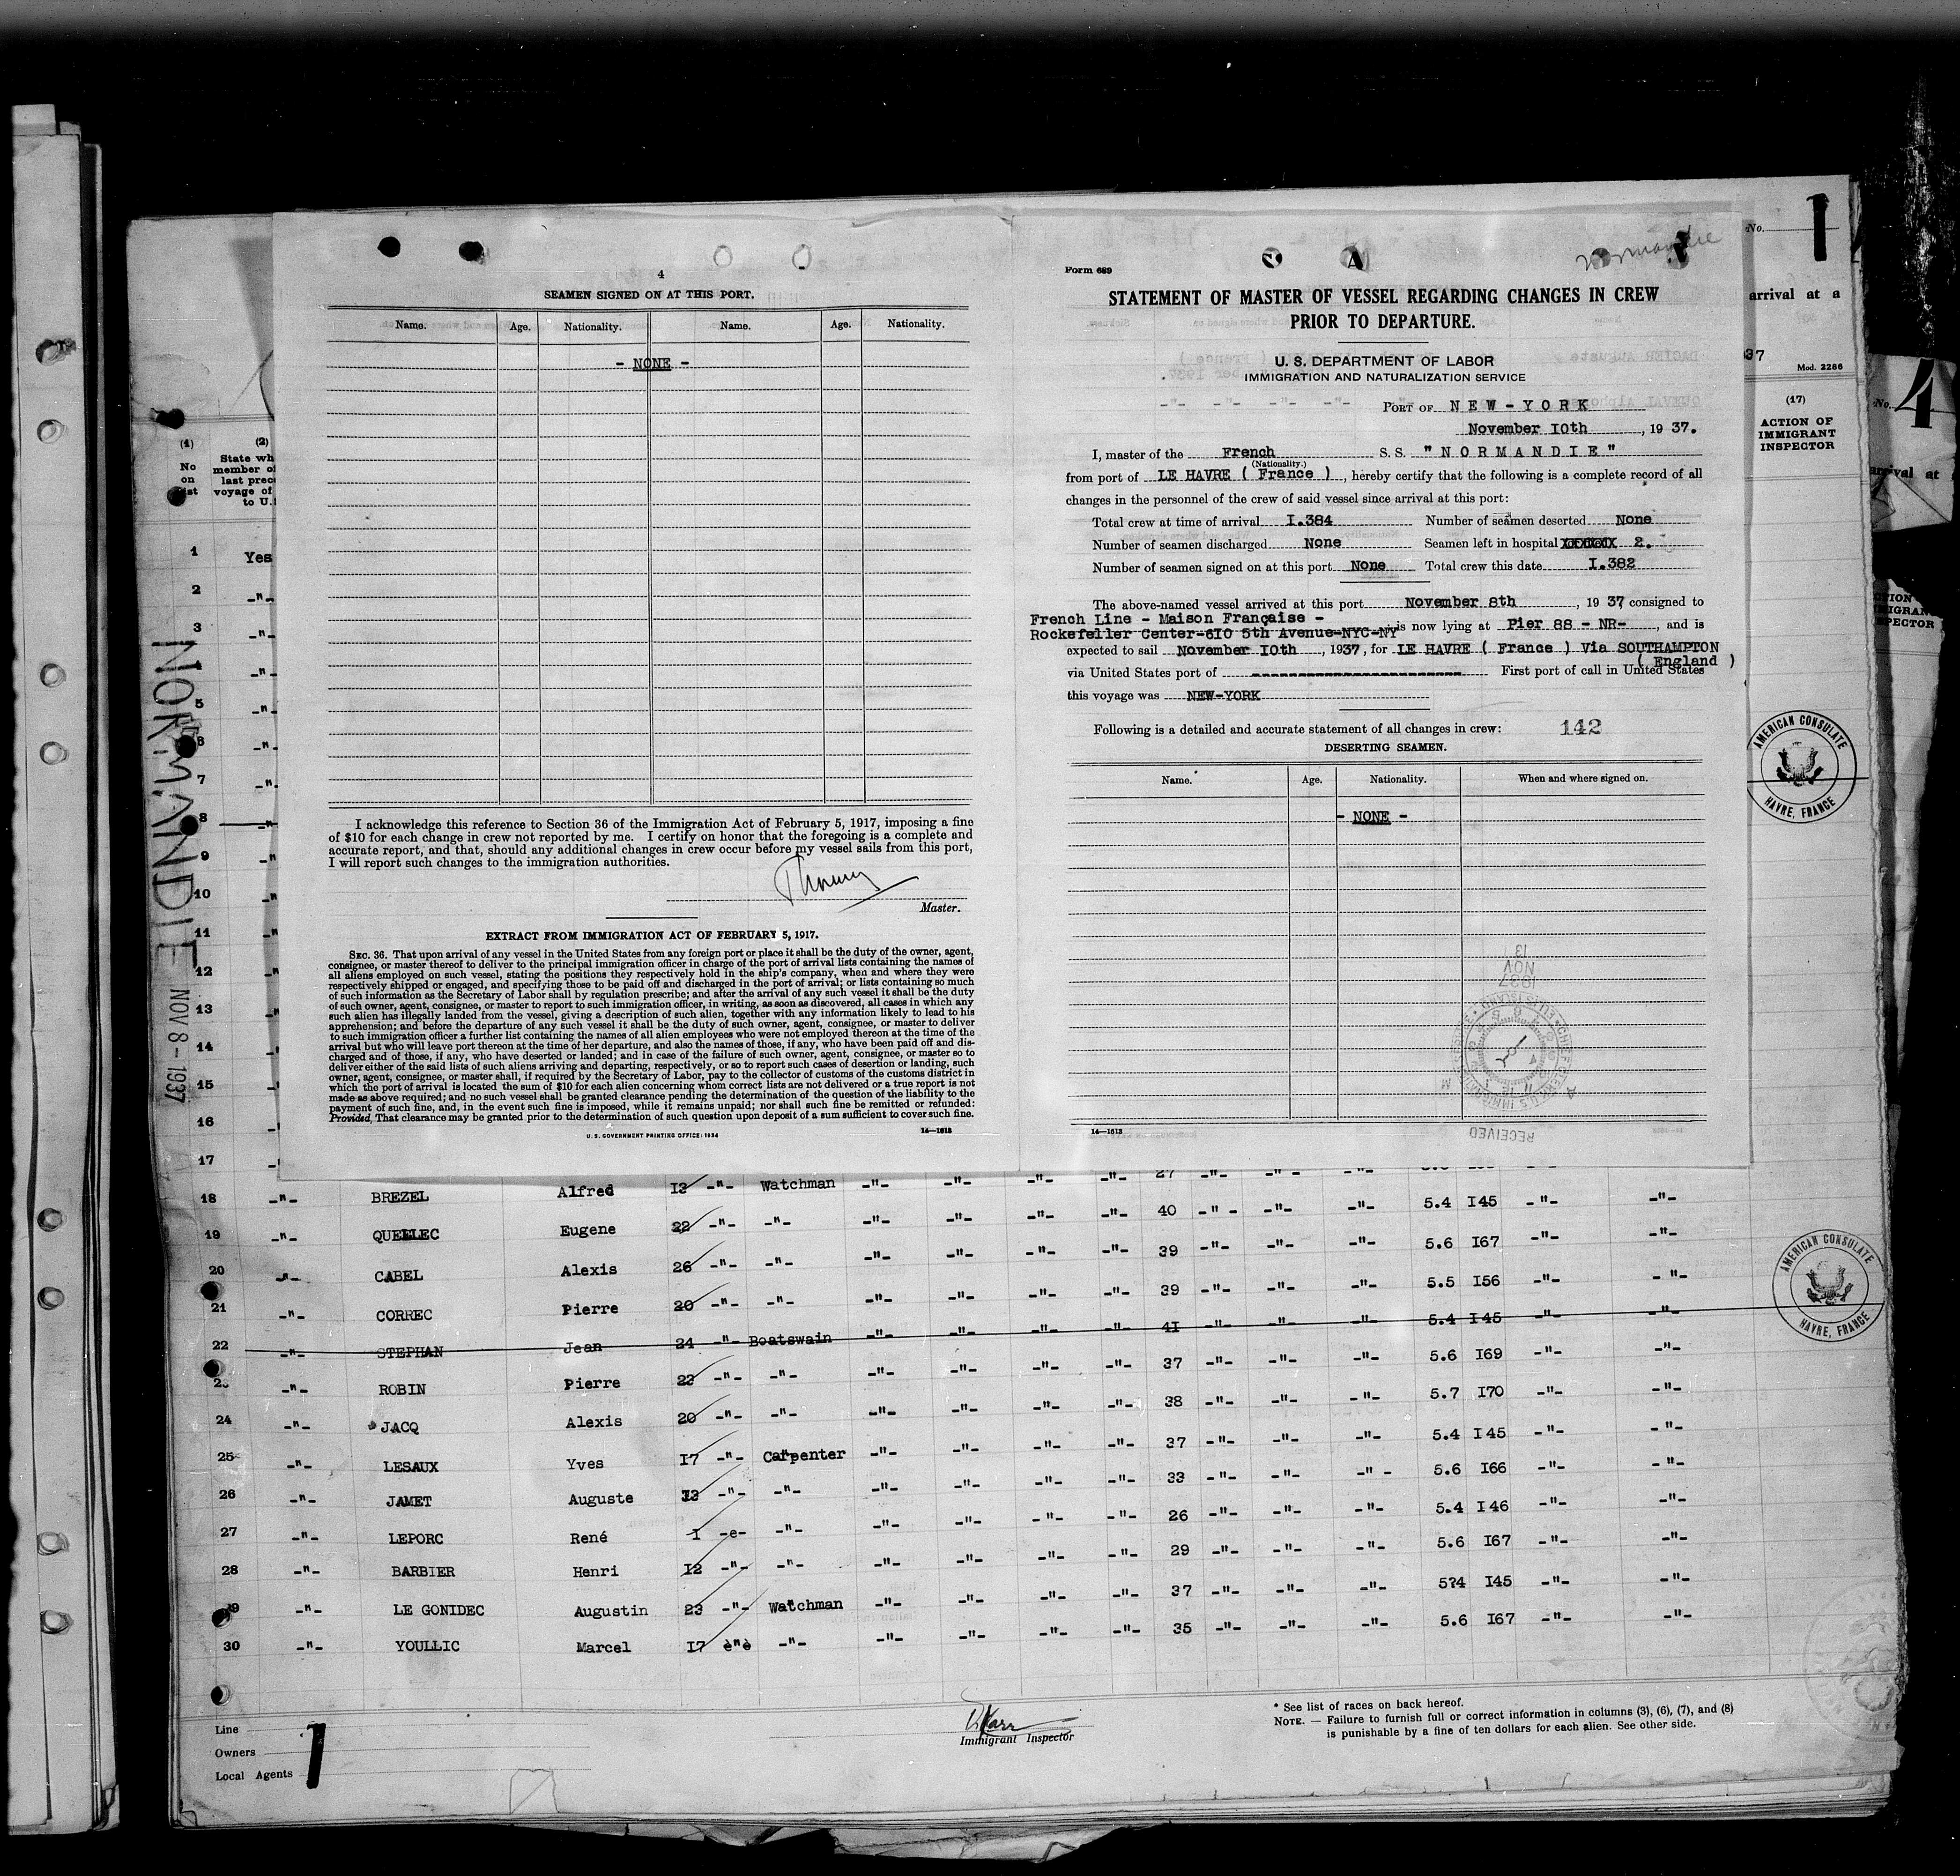 4
SEAMEN SIGNED ON AT THIS PORT.
Name. Age. Nationality. Name. Age. Nationality.
- NONE -
I acknowledge this reference to Section 36 of the Immigration Act of February 5, 1917, imposing a fine
of $10 for each change in crew not reported by me. I certify on honor that the foregoing is a complete and
accurate report, and that, should any additional changes in crew occur before my vessel sails from this port,
I will report such changes to the immigration authorities.
Master.
EXTRACT FROM IMMIGRATION ACT OF FEBRUARY 5, 1917.
SEC. 36. That upon arrival of any vessel in the United States from any foreign port or place it shall be the duty of the owner, agent,
consignee, or master thereof to deliver to the principal immigration officer in charge of the port of arrival lists containing the names of
all aliens employed on such vessel, stating the positions they respectively hold in the ship's company, when and where they were
respectively shipped or engaged, and specifying those to be paid off and discharged in the port of arrival; or lists containing so much
of such information as the Secretary of Labor shall by regulation prescribe; and after the arrival of any such vessel it shall be the duty
of such owner, agent, consignee, or master to report to such immigration officer, in writing, as soon as discovered, all cases in which any
such alien has illegally landed from the vessel, giving a description of such alien, together with any information likely to lead to his
apprehension; and before the departure of any such vessel it shall be the duty of such owner, agent, consignee, or master to deliver
to such immigration officer a further list containing the names of all alien employees who were not employed thereon at the time of the
arrival but who will leave port thereon at the time of her departure, and also the names of those, if any, who have been paid off and dis-
charged and of those, if any, who have deserted or landed; and in case of the failure of such owner, agent, consignee, or master so to
deliver either of the said lists of such aliens arriving and departing, respectively, or so to report such cases of desertion or landing, such
owner, agent, consignee, or master shall, if required by the Secretary of Labor, pay to the collector of customs of the customs district in
which the port of arrival is located the sum of $10 for each alien concerning whom correct lists are not delivered or a true report is not
made as above required; and no such vessel shall be granted clearance pending the determination of the question of the liability to the
payment of such fine, and, in the event such fine is imposed, while it remains unpaid; nor shall such fine be remitted or refunded:
Provided, That clearance may be granted prior to the determination of such question upon deposit of a sum sufficient to cover such fine.
U. S. GOVERNMENT PRINTING OFFICE: 1934
14—1613
Form 689
Normandie
STATEMENT OF MASTER OF VESSEL REGARDING CHANGES IN CREW
PRIOR TO DEPARTURE.
U. S. DEPARTMENT OF LABOR
IMMIGRATION AND NATURALIZATION SERVICE
PORT OF NEW-YORK
November 10th, 1937.
I, master of the French S. S. "NORMANDIE"
(Nationality.)
from port of LE HAVRE ( France ), hereby certify that the following is a complete record of all
changes in the personnel of the crew of said vessel since arrival at this port:
Total crew at time of arrival I.384 Number of seamen deserted None
Number of seamen discharged None Seamen left in hospital 2.
Number of seamen signed on at this port None Total crew this date I.382
The above-named vessel arrived at this port November 8th, 1937 consigned to
French Line - Maison Française -
Rockefeller Center-610 5th Avenue-NYC-NY is now lying at Pier 88 - NR-, and is
expected to sail November 10th, 1937, for LE HAVRE ( France ) Via SOUTHAMPTON
( England )
via United States port of First port of call in United States
this voyage was NEW-YORK
Following is a detailed and accurate statement of all changes in crew: 142
DESERTING SEAMEN.
Name. Age. Nationality. When and where signed on.
- NONE -
1937
NOV
13
RECEIVED
14—1613
No. 1
arrival at a
37
Mod. 2286
(17)
ACTION OF
IMMIGRANT
INSPECTOR
No. 4
arrival at
AMERICAN CONSULATE
HAVRE, FRANCE
(1)
No
on
list
(2)
State wh
member of
last prec
voyage of
to U.
NORMANDIE NOV 8 - 1937
1 Yes
2 -"-
3 -"-
-"-
5 -"-
6 -"-
7 -"-
8
9
10
11
12
13
14
15
16
17
18 -"- BREZEL Alfred I3 -"- Watchman -"- -"- -"- -"- 40 -"- -"- -"- 5.4 I45 -"- -"-
19 -"- QUELLEC Eugene 22 -"- -"- -"- -"- -"- -"- 39 -"- -"- -"- 5.6 I67 -"- -"-
20 -"- CABEL Alexis 26 -"- -"- -"- -"- -"- -"- 39 -"- -"- -"- 5.5 I56 -"- -"-
21 -"- CORREC Pierre 20 -"- -"- -"- -"- -"- -"- 41 -"- -"- -"- 5.4 I45 -"- -"-
22 -"- STEPHAN Jean 24 -"- Boatswain -"- -"- -"- -"- 37 -"- -"- -"- 5.6 I69 -"- -"-
23 -"- ROBIN Pierre 22 -"- -"- -"- -"- -"- -"- 38 -"- -"- -"- 5.7 I70 -"- -"-
24 -"- JACQ Alexis 20 -"- -"- -"- -"- -"- -"- 37 -"- -"- -"- 5.4 I45 -"- -"-
25 -"- LESAUX Yves I7 -"- Carpenter -"- -"- -"- -"- 33 -"- -"- -"- 5.6 I66 -"- -"-
26 -"- JAMET Auguste -"- -"- -"- -"- -"- -"- 26 -"- -"- -"- 5.4 I46 -"- -"-
27 -"- LEPORC René I -e- -"- -"- -"- -"- -"- 29 -"- -"- -"- 5.6 I67 -"- -"-
28 -"- BARBIER Henri I2 -"- -"- -"- -"- -"- -"- 37 -"- -"- -"- 5?4 I45 -"- -"-
29 -"- LE GONIDEC Augustin 23 -"- Watchman -"- -"- -"- -"- 35 -"- -"- -"- 5.6 I67 -"- -"-
30 -"- YOULLIC Marcel I7 è"è -"-
AMERICAN CONSULATE
HAVRE, FRANCE
Line
Owners
Local Agents
1
Immigrant Inspector
* See list of races on back hereof.
NOTE. — Failure to furnish full or correct information in columns (3), (6), (7), and (8)
is punishable by a fine of ten dollars for each alien. See other side.